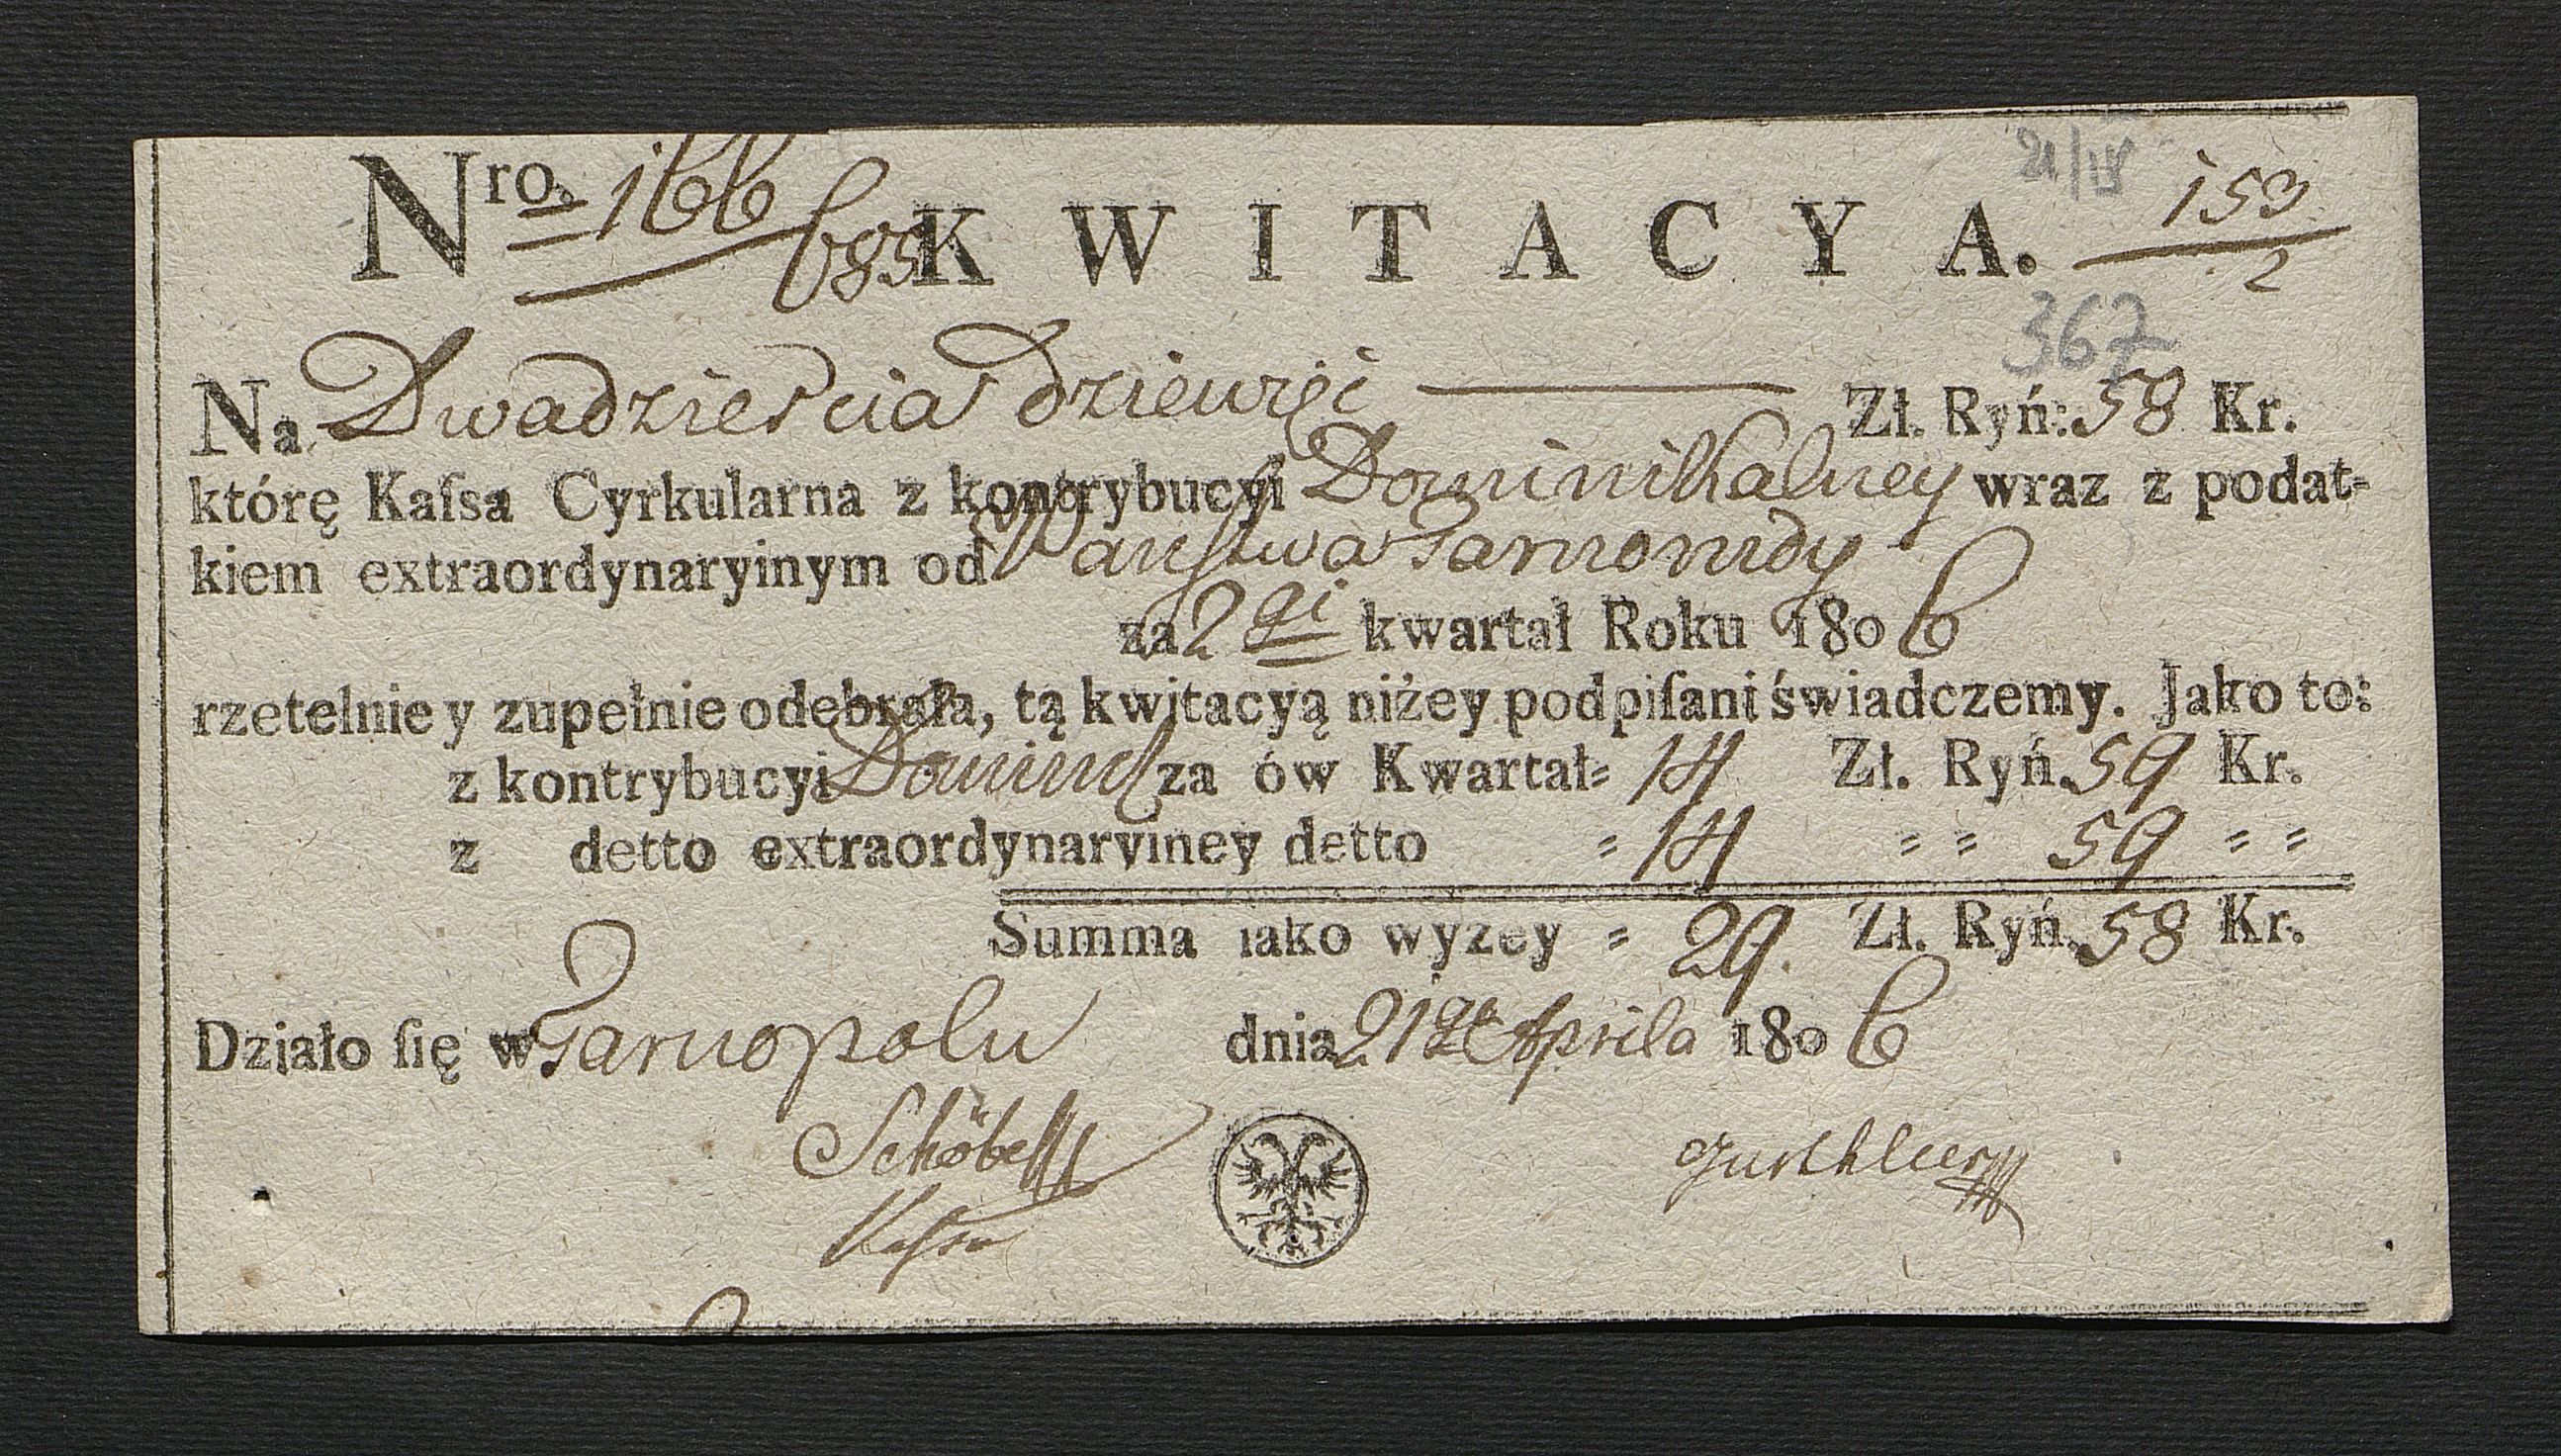 Nro. 166/685 KWITACYA. 153/2
21/IV
367
Na Dwadzieścia dziewięć Zł. Ryń: 58 Kr.
którę Kaſsa Cyrkularna z kontrybucyi Dominikalney wraz z podat-
kiem extraordynaryinym od Państwa Tarnorudy
za 2gi kwartał Roku 1806
rzetelnie y zupełnie odebrała, tą kwitacyą niżey podpiſani świadczemy. Jako to:
z kontrybucyi Dominl za ów Kwartał = 14 Zł. Ryń. 59 Kr.
z detto extraordynaryiney detto = 14 = = 59 = =
Summa iako wyzey = 29. Zł. Ryń. 58 Kr.
Działo ſię w Tarnopolu dnia 21go Aprila 1806
Schöbel
Kaſsa